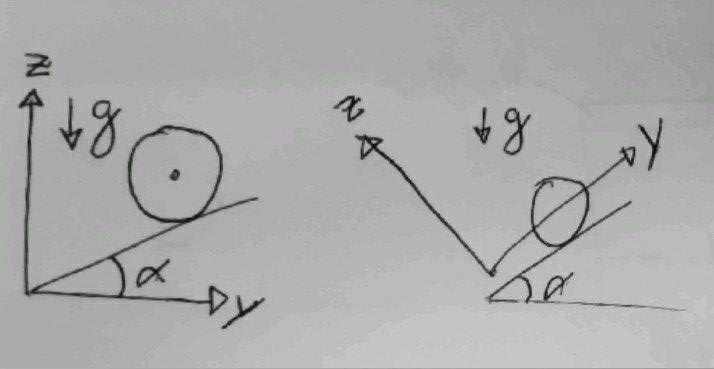 z
g
α
y
z
g
y
α